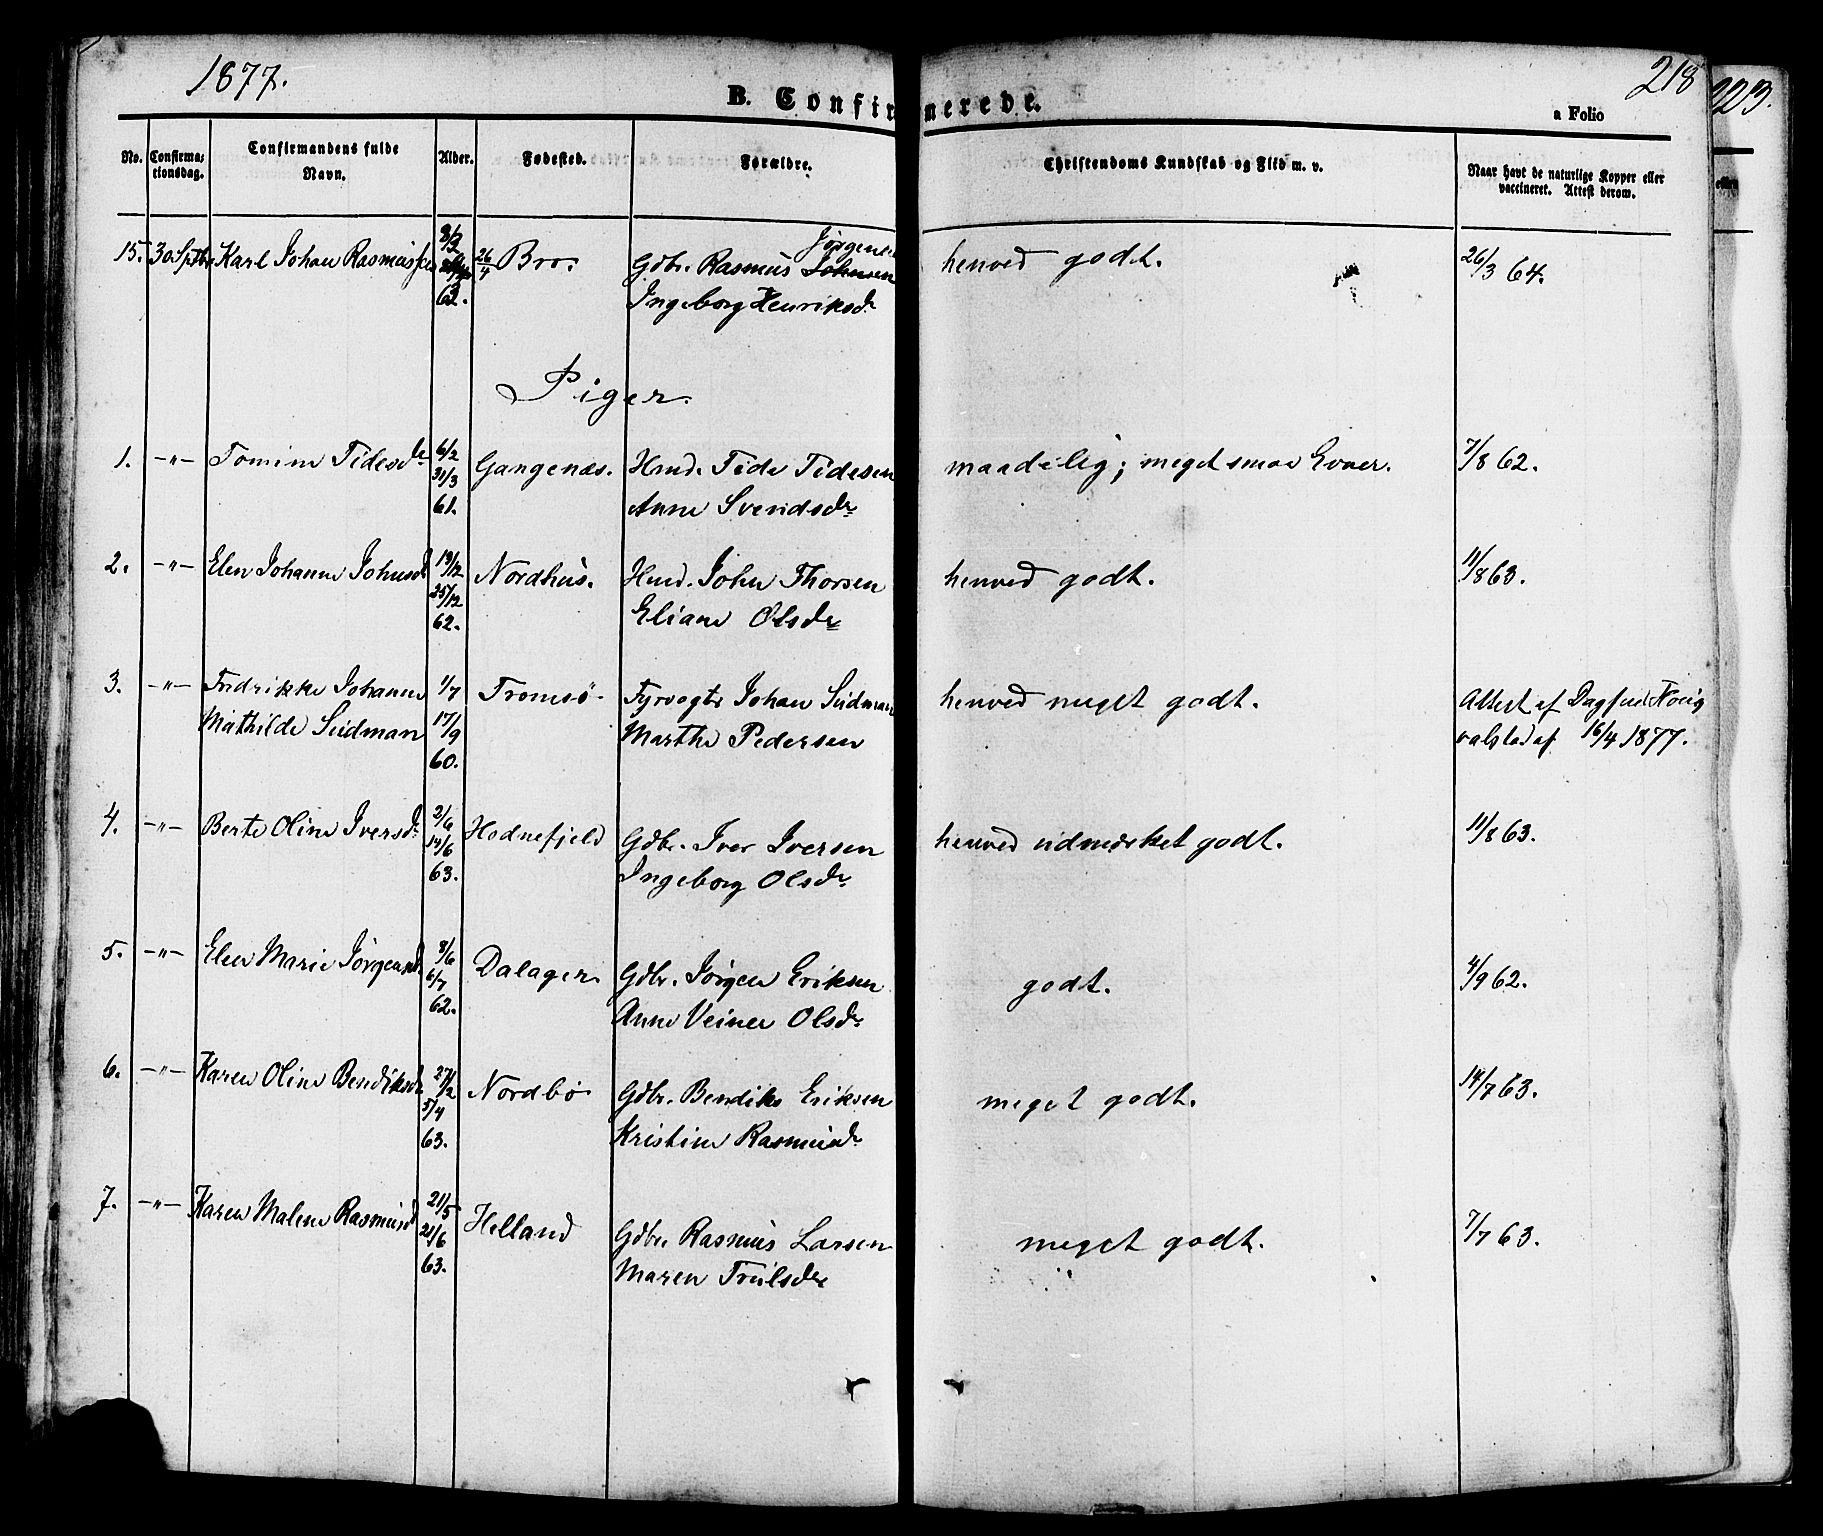 1877.
218
223.
B. Confirmerede.
a Folio
No. Confirmationsdag. Confirmandens fulde Navn. Alder. Fødested. Forældre. Christendoms Kundskab og Flid m. v. Naar havt de naturlige Kopper eller vaccineret. Attest derom.
15. 30 Sptbr Karl Johan Rasmussen 8/3 62. 26/4 Bro. Gdbr. Rasmus Johnsen Jørgensen henved godt. 26/3 64.
Ingeborg Henriksdr
Piger
1. -"- Tomine Tidesdr 6/2 31/3 61. Gangenæs. Hmd. Tide Tidesen maadelig; meget smaa Evner. 7/8 62.
Anne Svendsdr
2. -"- Elen Johanne Johnsd 19/12 25/12 62. Nordhus. Hmd. John Thorsen henved godt. 11/8 63.
Eliane Olsdr
3. -"- Fredrikke Johanne 1/7 17/9 60. Tromsø Fyrvogter Johan Sudman henved meget godt. Attest af Dagfin
Mathilde Sudman Marthe Pedersen 16/4 1877.
4. -"- Berte Oline Iversdr 2/6 14/6 63. Hodnefjeld Gdbr. Iver Iversen henved udmærket godt. 11/8 63.
Ingeborg Olsdr
5. -"- Elen Marie Jørgensd 8/6 6/7 62. Dalager Gdbr. Jørgen Eriksen godt. 4/9 62.
Anne Veiner Olsdr
6. -"- Karen Oline Bendiksd 27/2 5/4 63. Nordbø Gdbr. Bendiks Eriksen meget godt. 14/7 63.
Kristine Rasmusdr
7. -"- Karen Malene Rasmusd 21/5 21/6 63. Helland Gdbr. Rasmus Larsen meget godt. 7/7 63.
Maren Trulsdr